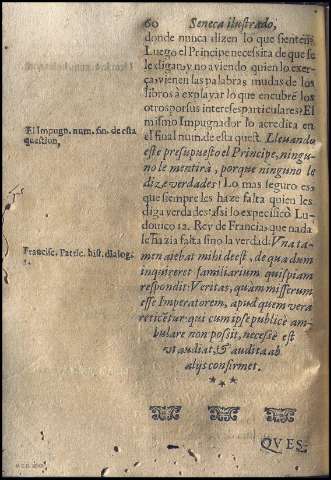 60 Seneca ilustrado,
donde nunca dizen lo que sienten.
Luego el Principe necessita de que se
le digan, y no aviendo quien lo exer-
ça, vienen las palabras mudas de los
libros à explayar lo que encubrē los
otros por sus interesses particulares? El
mismo Impugnador lo acredita en
el final num. de esta quest. Llevando
este presupuesto el Principe, ningu-
no le mentirà, porque ninguno le
dize verdades! Lo mas seguro es,
que siempre les haze falta quien les
diga verdades: assi lo expecificò Lu-
dovico 12. Rey de Francia, que nada
le hazia falta sino la verdad. Vna ta-
men aiebat mihi deest, de qua dum
inquireret familiarium quispiam
respondit: Veritas, quam misserum
esse Imperatorem, apud quem vera
reticētur qui cum ipse publicè am-
bulare non possit, necesse est
vt audiat, & audita ab
alijs confirmet.
El Impugn. num. fin. de esta
question.
Francisc. Patric. hist. dialog.
QVES-